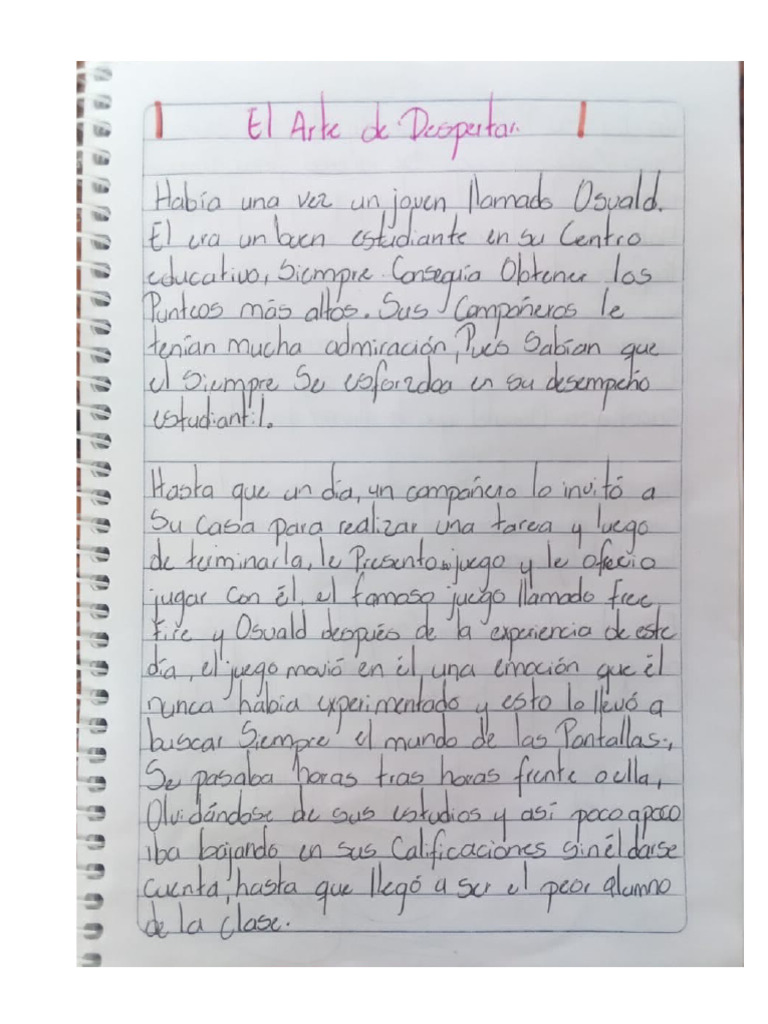 El Arte de Despertar.
Había una vez un joven llamado Osvald.
El era un buen estudiante en su Centro
educativo, Siempre Conseguía Obtener los
Punteos más altos. Sus Compañeros le
tenían mucha admiración, Pues Sabían que
el Siempre Se esforzaba en su desempeño
estudiantil.
Hasta que un día, un compañero lo invitó a
Su Casa para realizar una tarea y luego
de terminarla, le Presento un juego y le ofecio
jugar con él, el famoso juego llamado free
fire y Osvald después de la experiencia de este
día, el juego movió en él, una emoción que él
nunca había experimentado y esto lo llevó a
buscar Siempre el mundo de las Pantallas.,
Se pasaba horas tras horas frente a ella,
Olvidándose de sus estudios y así poco a poco
iba bajando en sus Calificaciones sin él darse
Cuenta, hasta que llegó a ser el peor alumno
de la Clase.